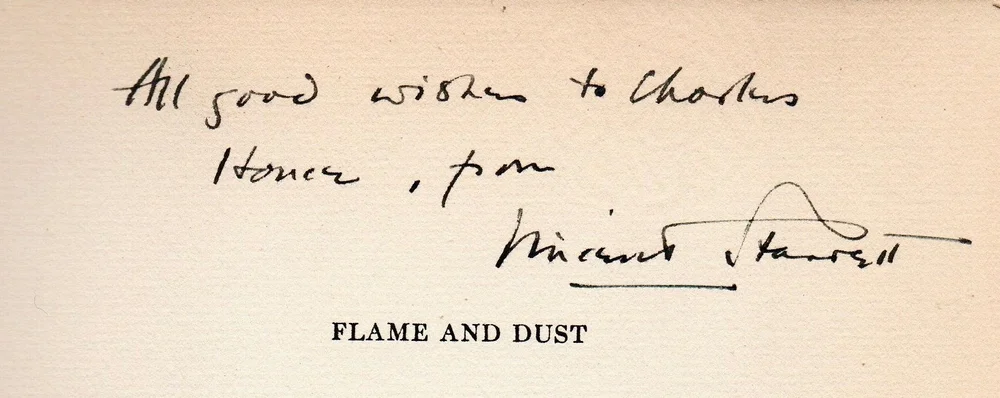 All good wishes to Charles
Honce, from
Vincent Starrett
FLAME AND DUST